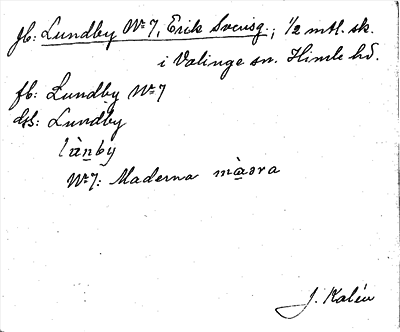 jb: Lundby No 7, Erik Svensg.; 1/2 mtl. sk.
i Valinge sn. Himle hd.
fb: Lundby No 7
dsb: Lundby
lànby
No 7: Maderna màɑra
J. Kalén